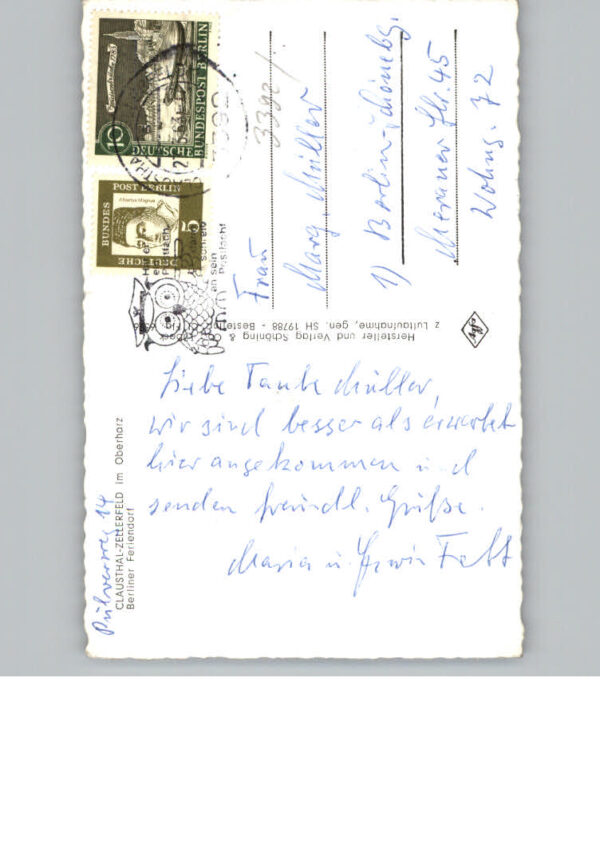 Liebe Tante Müller,
wir sind besser als erwartet
hier angekommen und
senden freundl. Grüße.
Maria u. Erwin
Pulverweg 14
CLAUSTHAL-ZELLERFELD im Oberharz
Berliner Feriendorf
Frau
Marg. Müller
1) Berlin-Schönebg.
Meraner Str. 45
Wohng. 72
3392
Hersteller und Verlag Schöning &
z Luftaufnahme, gen. SH 19788 - Bestell
10
DEUTSCHE
BUNDESPOST BERLIN
5
BUNDES
POST BERLIN
DEUTSCHE
Albertus Magnus
3392
an sein
Postfach